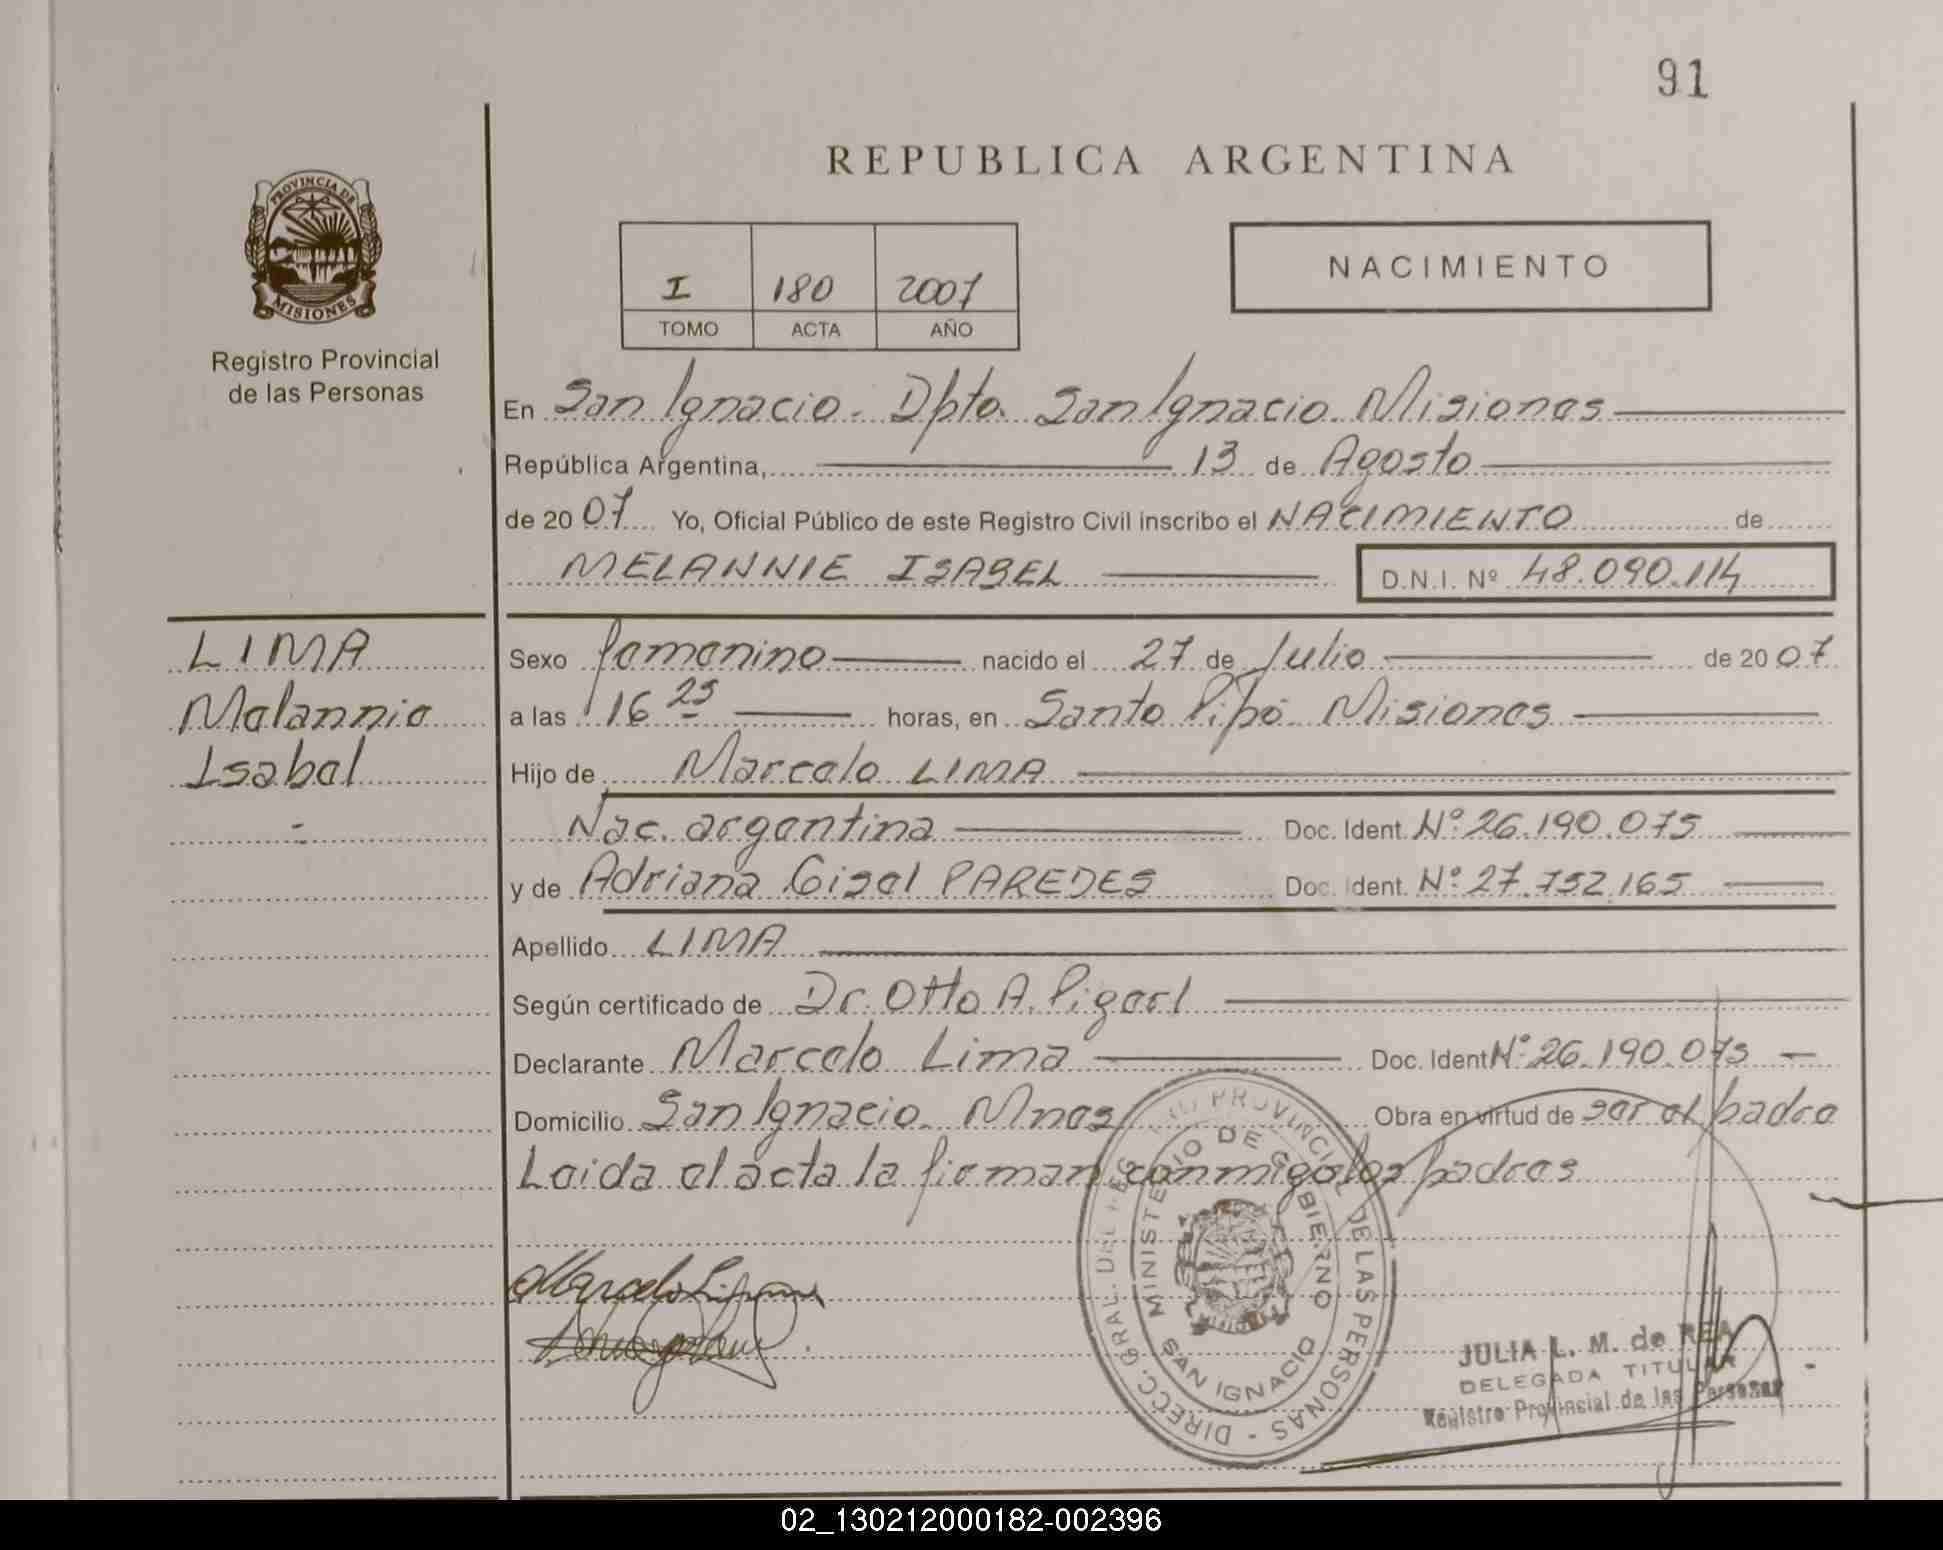 91
PROVINCIA DE
MISIONES
Registro Provincial
de las Personas
REPUBLICA ARGENTINA
I 180 2007
TOMO ACTA AÑO
NACIMIENTO
En San Ignacio. Dpto. San Ignacio Misiones
República Argentina, 13 de Agosto
de 20 07 Yo, Oficial Público de este Registro Civil inscribo el NACIMIENTO de
MELANNIE ISABEL D.N.I. Nº 48.090.114
LIMA
Melannie
Isabel
Sexo femenino nacido el 27 de Julio de 20 07
a las 16 25 horas, en Santo Pipó Misiones
Hijo de Marcelo LIMA
Nac. argentina Doc. Ident. Nº 26.190.075
y de Adriana Gisel PAREDES Doc. Ident. Nº 27.752.165
Apellido LIMA
Según certificado de Dr. Otto A. Pigerl
Declarante Marcelo Lima Doc. Ident Nº 26.190.075
Domicilio San Ignacio. Mnes Obra en virtud de ser el padre
Leida el acta la firman conmigo los padres
Marcelo Lima
DIRECC. GRAL. DEL REG PROVINCIAL DE LAS PERSONAS -
MINISTERIO DE GOBIERNO
SAN IGNACIO
JULIA L. M. de REA
DELEGADA TITULAR
Registro Provincial de las Personas
02_130212000182-002396